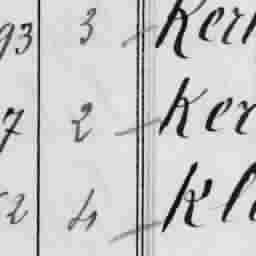 93 3 Ker
7 2 Ker
2 4 Kl